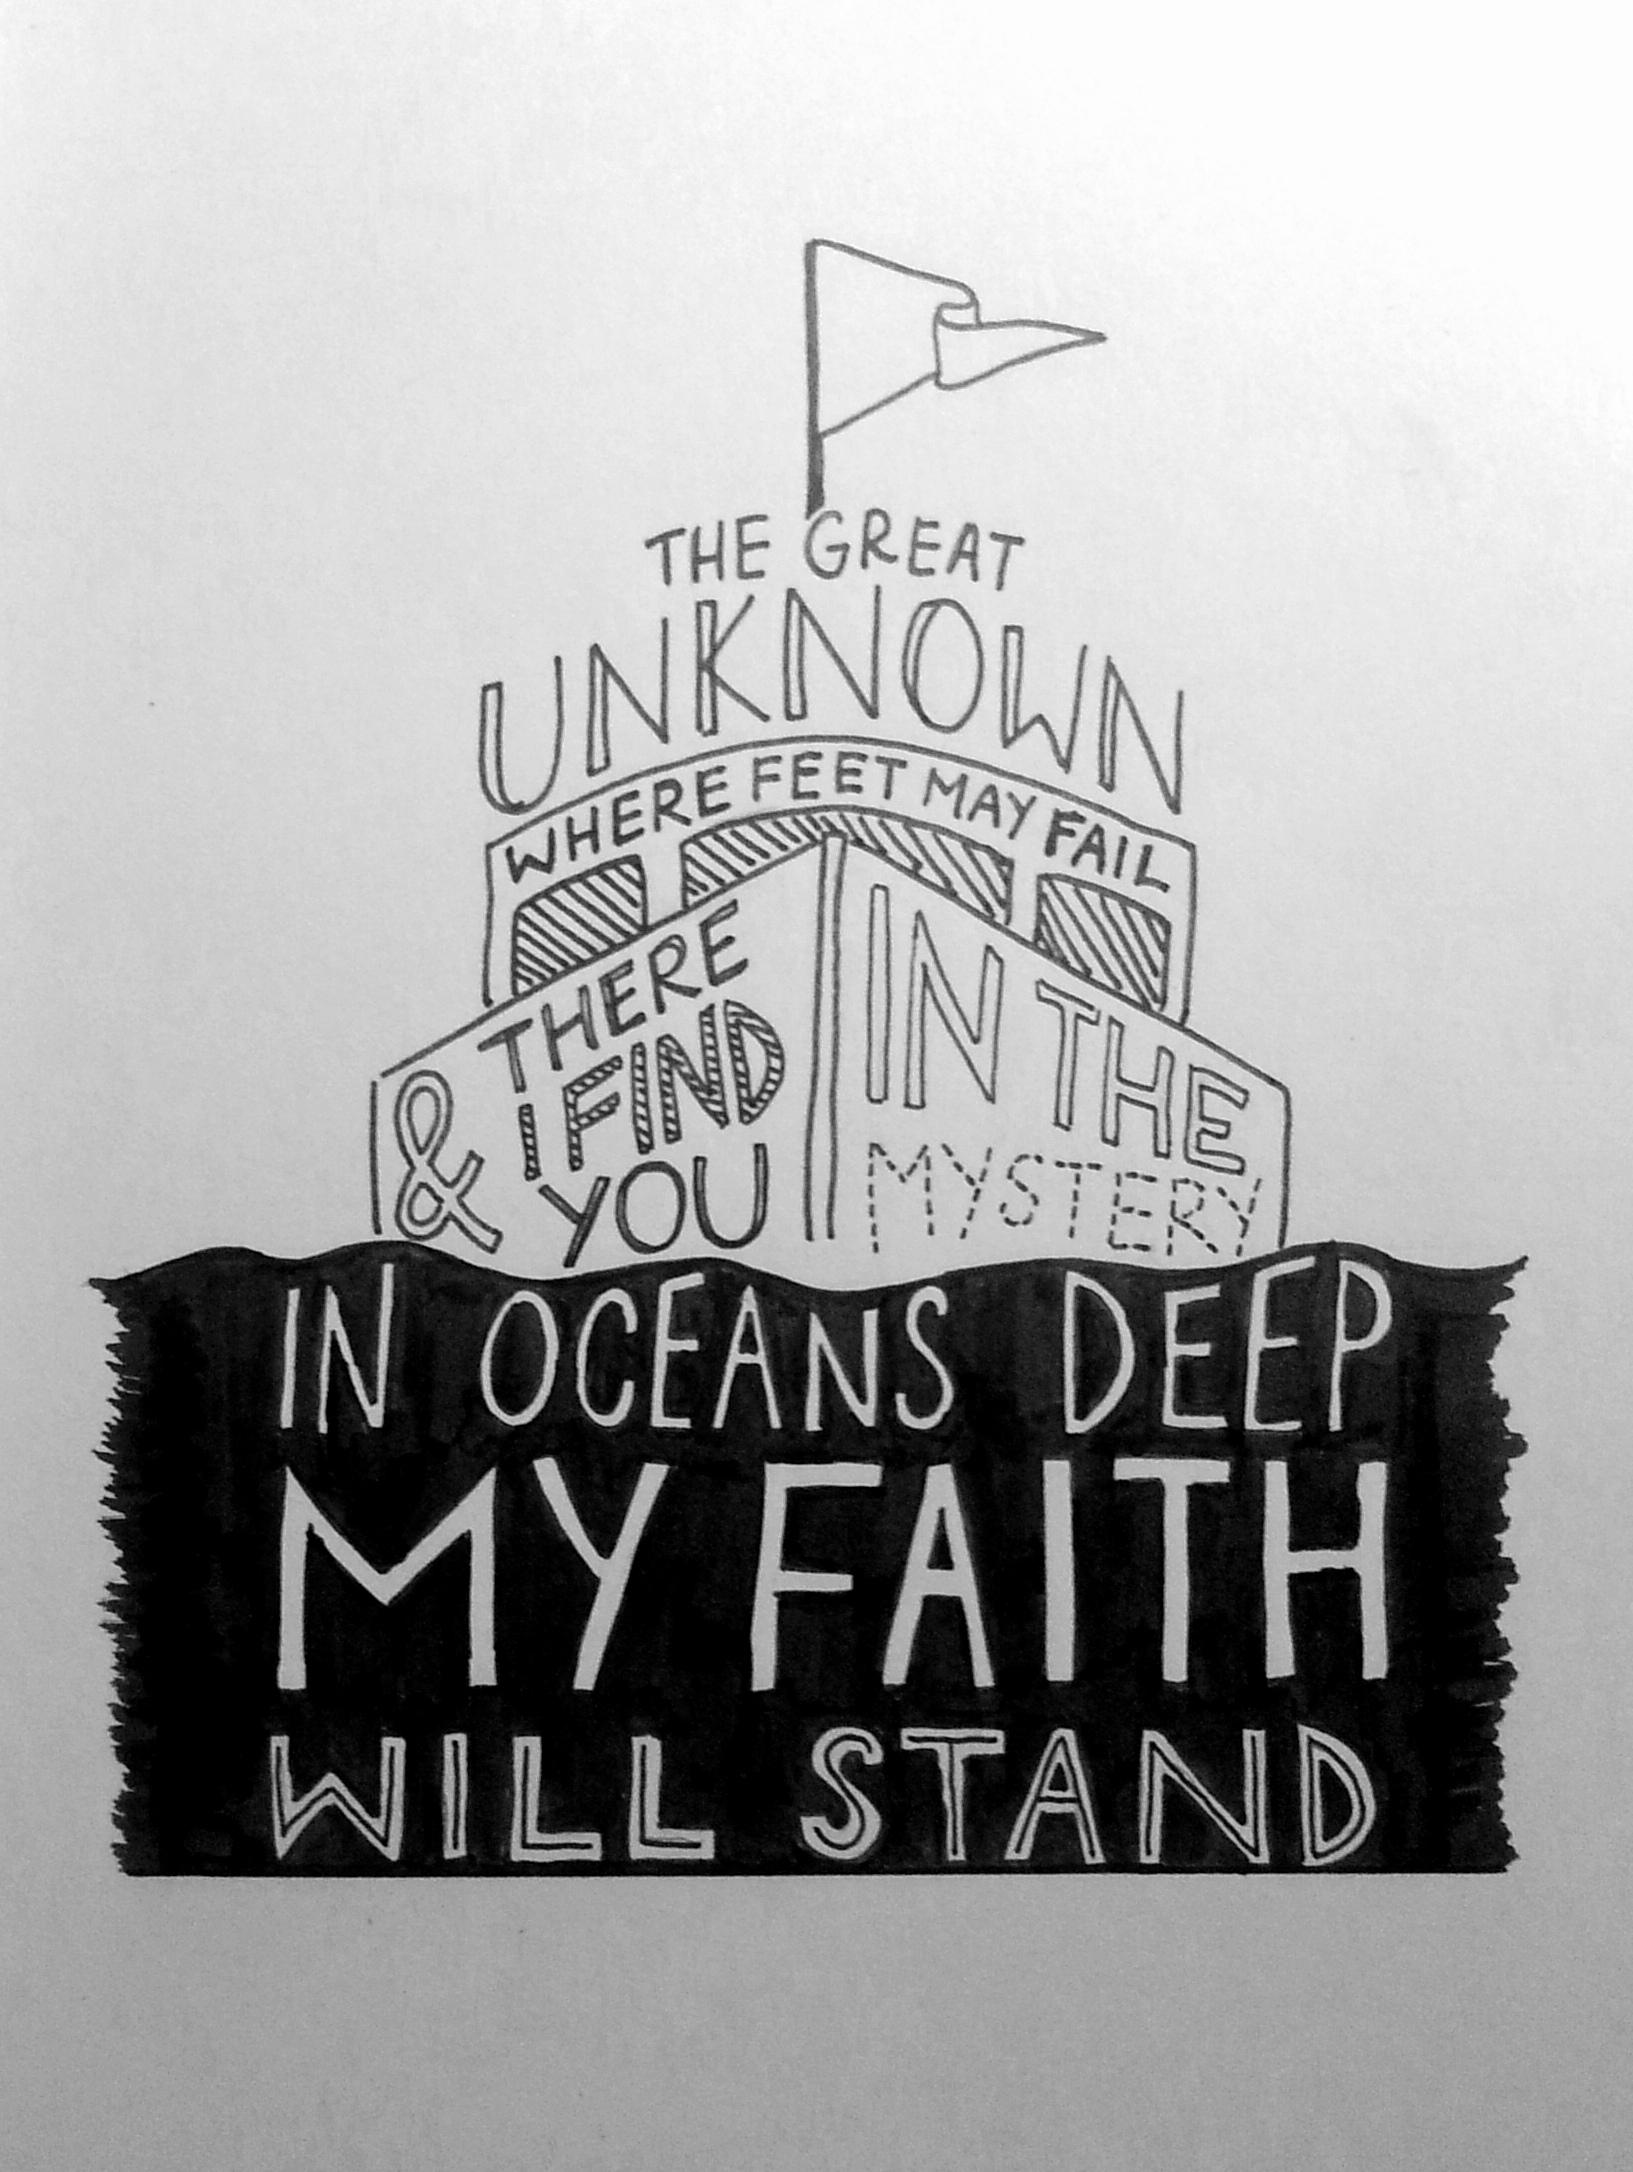 THE GREAT
UNKNOWN
WHERE FEET MAY FAIL
& THERE
I FIND
YOU
IN THE
MYSTERY
IN OCEANS DEEP
MY FAITH
WILL STAND